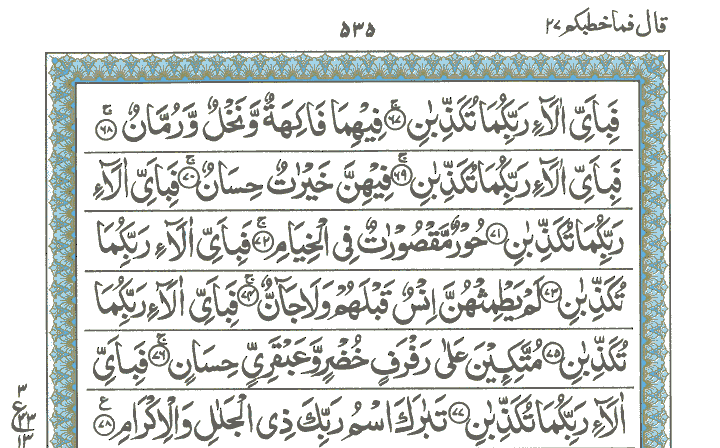 قال فماخطبكم ٢٧
٥٣٥
فَبِاَىِّ اٰلَآءِ رَبِّكُمَا تُكَذِّبٰنِ ۚ﴿۶۷﴾ فِيْهِمَا فَاكِهَةٌ وَّنَخْلٌ وَّرُمَّانٌ ۚ﴿۶۸﴾
فَبِاَىِّ اٰلَآءِ رَبِّكُمَا تُكَذِّبٰنِ ۚ﴿۶۹﴾ فِيْهِنَّ خَيْرٰتٌ حِسَانٌ ۚ﴿۷۰﴾ فَبِاَىِّ اٰلَآءِ
رَبِّكُمَا تُكَذِّبٰنِ ﴿۷۱﴾ حُوْرٌ مَّقْصُوْرٰتٌ فِى الْخِيَامِ ۚ﴿۷۲﴾ فَبِاَىِّ اٰلَآءِ رَبِّكُمَا
تُكَذِّبٰنِ ﴿۷۳﴾ لَمْ يَطْمِثْهُنَّ اِنْسٌ قَبْلَهُمْ وَلَا جَآنٌّ ۚ﴿۷۴﴾ فَبِاَىِّ اٰلَآءِ رَبِّكُمَا
تُكَذِّبٰنِ ﴿۷۵﴾ مُتَّكِـِٕيْنَ عَلٰى رَفْرَفٍ خُضْرٍ وَّعَبْقَرِىٍّ حِسَانٍ ۚ﴿۷۶﴾ فَبِاَىِّ
اٰلَآءِ رَبِّكُمَا تُكَذِّبٰنِ ﴿۷۷﴾ تَبٰرَكَ اسْمُ رَبِّكَ ذِى الْجَلٰلِ وَالْاِكْرَامِ ﴿۷۸﴾ ع
٣
ع ٢٣
١٣